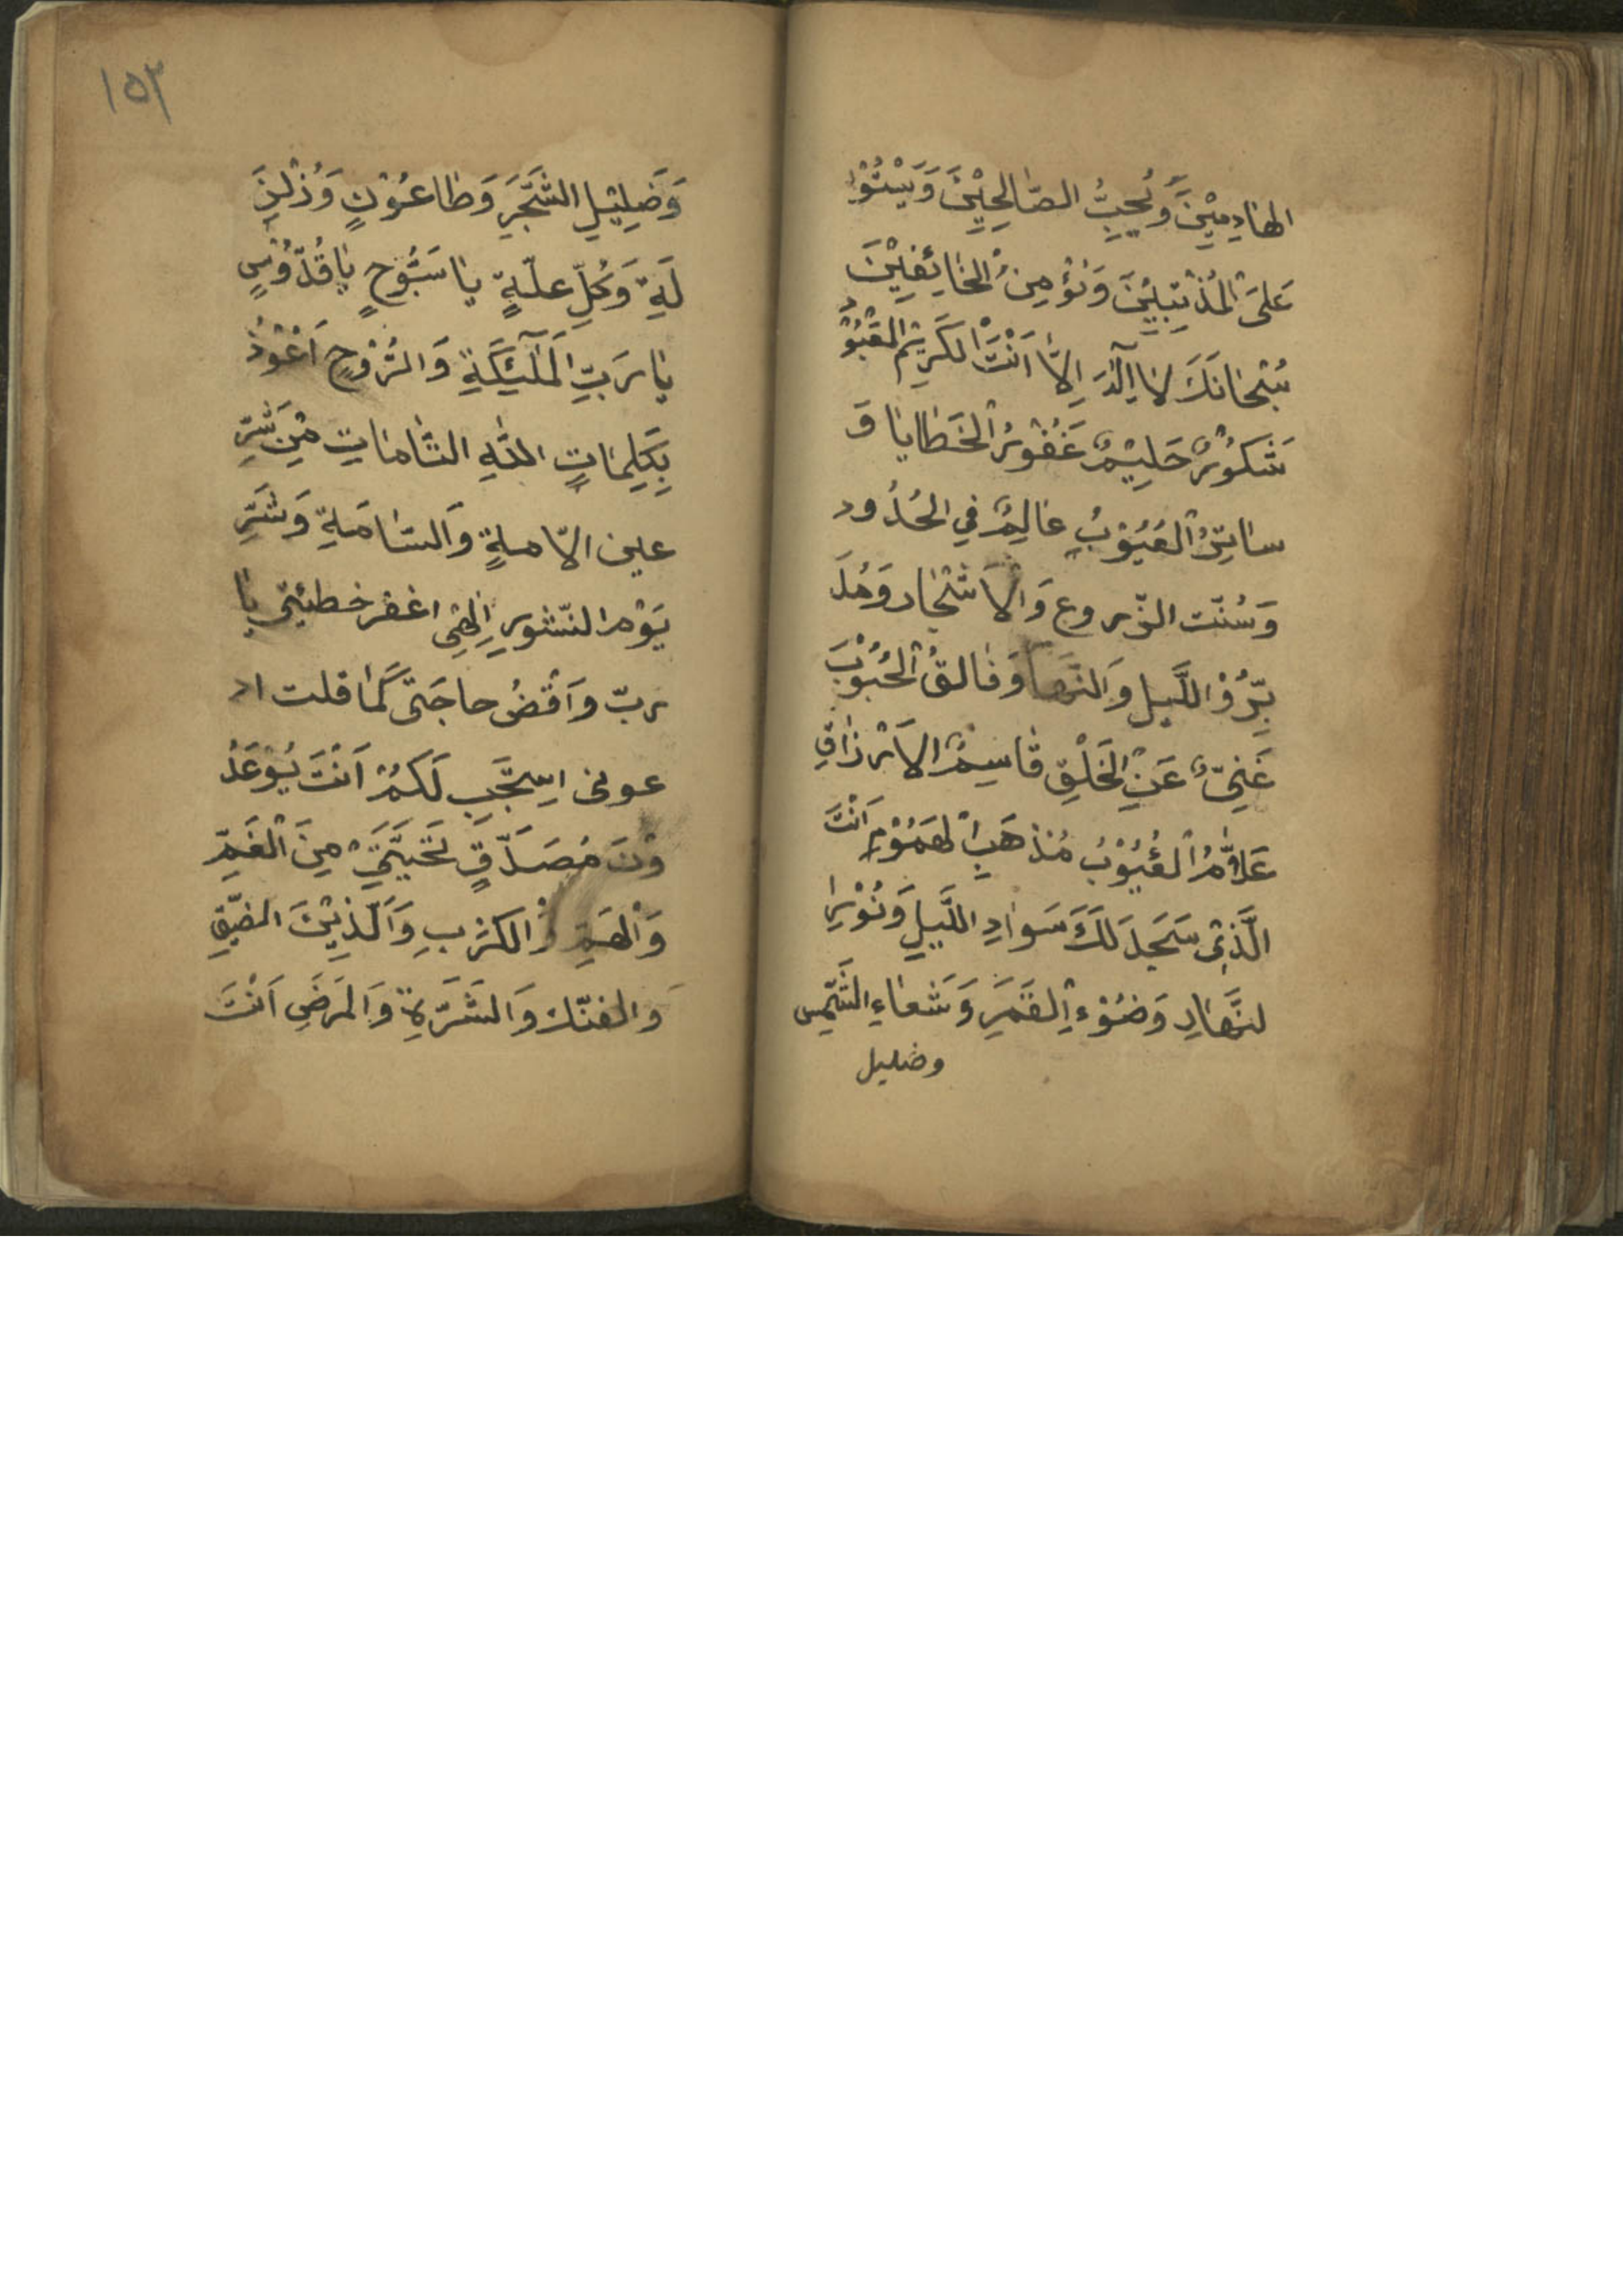 الهنادِمِيْنَ وَتُحِبُّ الصّٰالِحِيْنَ وَيَسْتُوْا
عَلىَ الْمُذْنِبِيْنَ وَنُؤْمِنُ الْخٰائِفِيْنَ
سُبْحٰانَكَ لاٰ اِلٰهَ اِلاّٰ اَنْتَ الْكَرِيْمُ الْقَبُوْ
شَكُوْرٌ حَلِيْمٌ غَفُوْرُ الْخَطٰايٰا وَ
سٰاتِرُ الْعُيُوْبِ عٰالِمٌ فِي الْحُدُود
وَسُنّت الزّروع وَالاَشْجٰار وَمُدَ
بِّرُ فْ اللَّيلِ وَالنَّهٰا وَفٰالقُ الْحُبُوْبَ
غَنِيٌّ عَنِ الْخَلْقِ قٰاسِمُ الاَرْزٰاقِ
عَلاّٰمُ الْغُيُوْبُ مُذهَبِ الْهمُوُمِ اَنْتَ
الَّذِىْ سَجَدَ لَكَ سَوٰادِ اللَّيلِ وَنُوْرِا
لنَّهٰارِ وَضُوْءِ الْقَمَرِ وَشعٰاءِ الشَّمْس
وضليل
١٥٣
وَضَلِيْلِ الشَّجَرَ وَطٰاعُوْنٍ وَذلْنِ
لَةِ وَكُلِّ علّةٍ يٰا سَبُّوْحٍ يٰا قُدّوُسٍ
يٰا رَبِّ الْمَلٰٓئِكَةِ وَالرُّوْحٍ اَعُوْذُ
بِكَلِمٰاتٍ اللّٰهِ التّٰامٰاتِ مْنِ شَرِّ
عين الاّمةٍ وَالسّٰامَةِ وَشَرِّ
يَوْم النّشورِ اِلٰهِى اغفر خطيئتى يٰا
ربّ وَاَقْضُ حاجَتى كَمٰا قلت اد
عونى استَجَبِ لَكُمْ اَنْتَ يُوْعَدُ
وْنَ مُصَدّقٍ نَجّيَّنىْ مِنَ الْغَمِّ
وَالْهَمِّ وَالكَرْبِ وَالَّذِيْنَ الضّيْقِ
وَالضنّك وَالشَرّةِ وَالمَرَضِ اَنْتَ